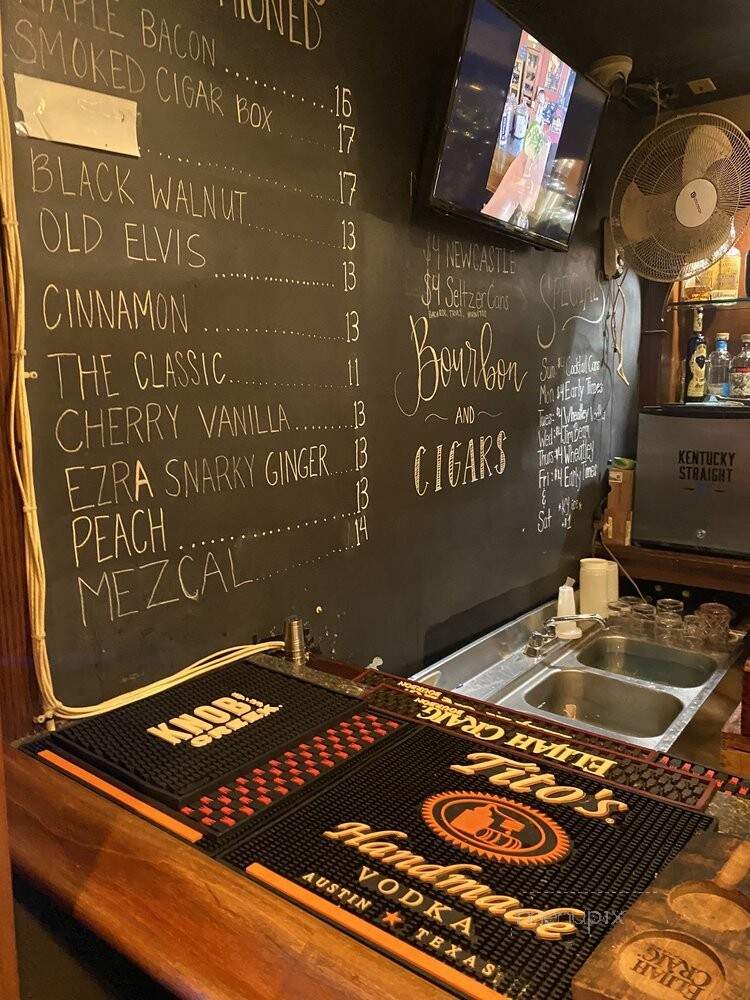 MAPLE BACON
SMOKED CIGAR BOX 16
17
17
BLACK WALNUT 13
OLD ELVIS 13
CINNAMON 13
THE CLASSIC 11
CHERRY VANILLA 13
EZRA SNARKY GINGER 13
PEACH 13
MEZCAL 14
$4 NEWCASTLE
$4 Seltzer Cans
Bourbon
AND
CIGARS
SPECIALS
Sun: $4 Cocktail Cans
Mon: $4 Early Times
Tues: $4 Wheatley
Wed: $4 Jim Beam
Thurs: $4 Wheatley
Fri: $4 Early Times
&
Sat
KENTUCKY
STRAIGHT
KNOB
CREEK
ELIJAH CRAIG
Tito's
Handmade
VODKA
AUSTIN ★ TEXAS
ELIJAH
CRAIG
menupix